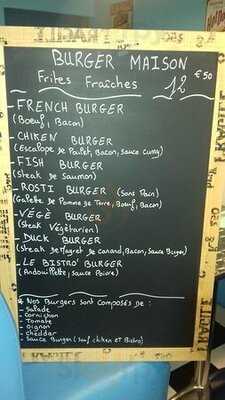 BURGER MAISON
Frites Fraîches 12 €50
- FRENCH BURGER
(Boeuf, Bacon)
- CHIKEN BURGER
(Escalope de Poulet, Bacon, sauce Curry)
- FISH BURGER
(Steak de Saumon)
- ROSTI BURGER (sans Pain)
(Galette de Pomme de Terre, Boeuf, Bacon)
- VÉGÉ BURGER
(Steak Végétarien)
- DUCK BURGER
(Steak de Magret de Canard, Bacon, Sauce Burger)
- LE BISTRO' BURGER
(Andouillette, sauce Poivre)
* Nos Burgers sont Composés de :
- Salade
- Cornichon
- Tomate
- Oignon
- Cheddar
- Sauce Burger (sauf Chiken et Bistro)
FRAGILE